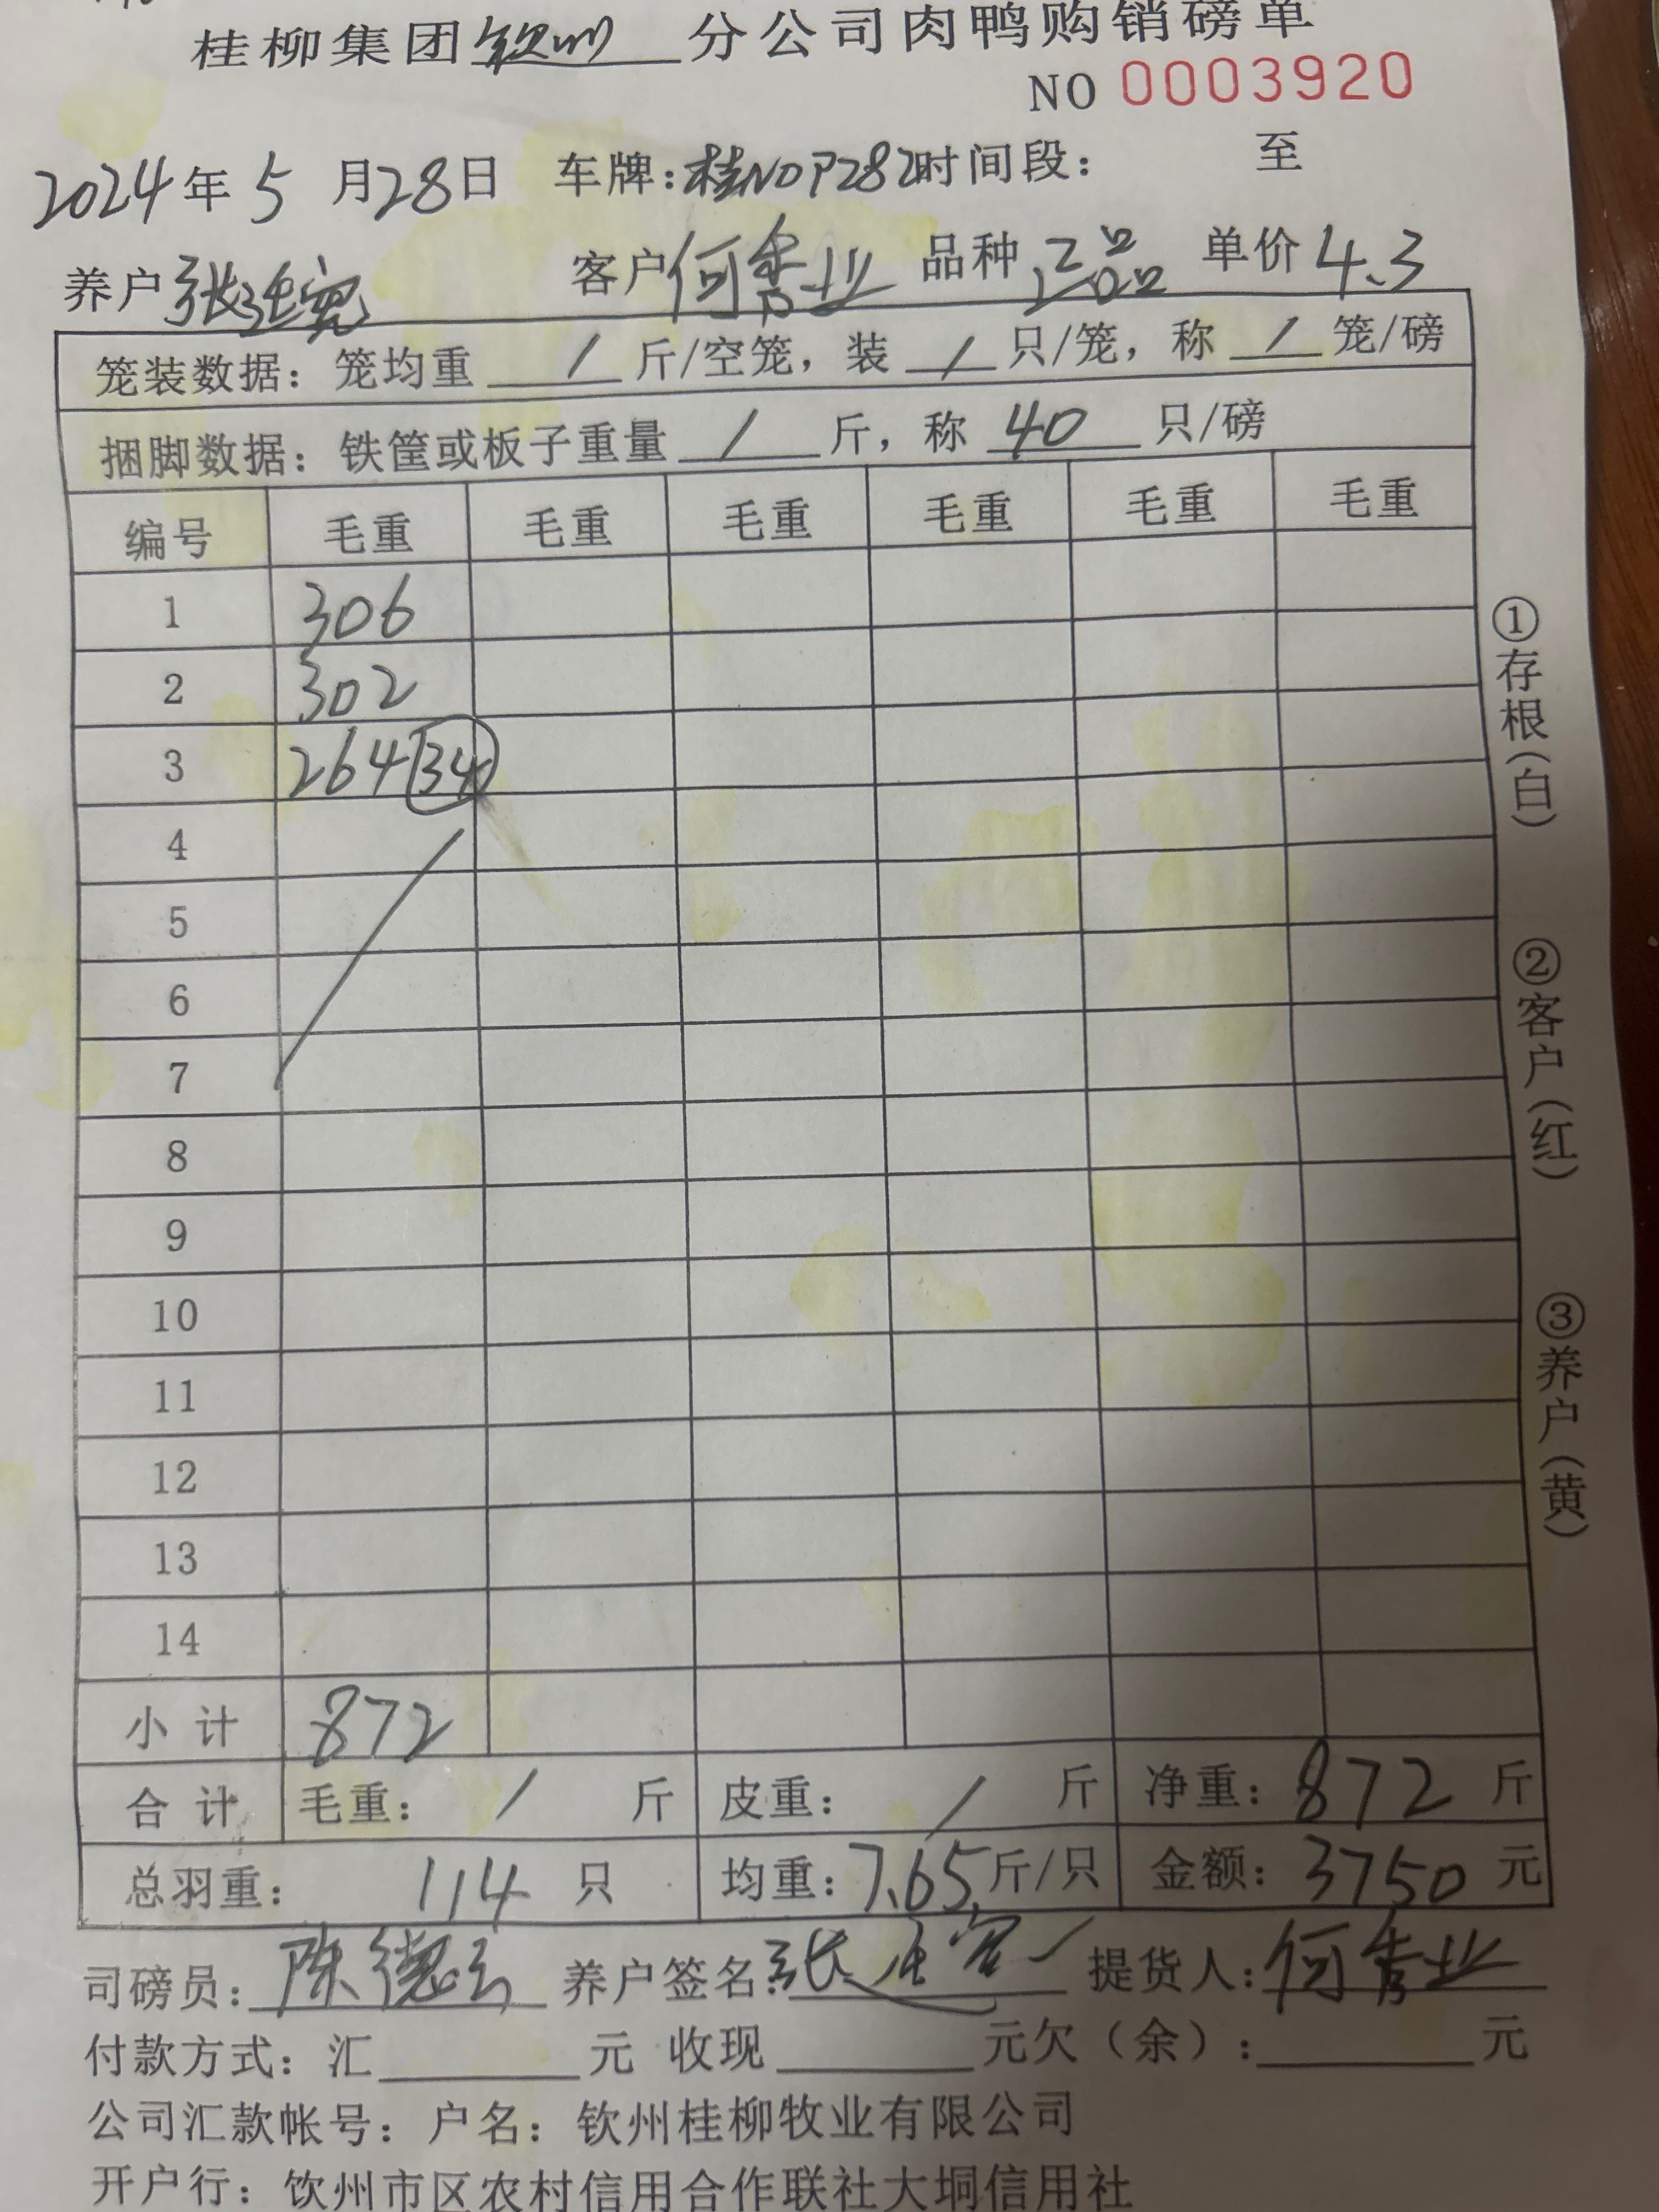 桂柳集团钦州分公司肉鸭购销磅单
NO 0003920
2024年5月28日 车牌:桂N0P282时间段: 至
养户张 客户何 业 品种正品 单价4.3
笼装数据: 笼均重 / 斤/空笼, 装 / 只/笼, 称 / 笼/磅
捆脚数据: 铁筐或板子重量 / 斤, 称 40 只/磅
编号 毛重 毛重 毛重 毛重 毛重 毛重
1 306
2 302
3 264 34
4
5
6
7
8
9
10
11
12
13
14
小计 872
合计 毛重: / 斤 皮重: / 斤 净重: 872 斤
总羽重: 114 只 均重: 7.65 斤/只 金额: 3750 元
司磅员: 陈德 养户签名: 张 提货人: 何 业
付款方式: 汇 元 收现 元欠(余): 元
公司汇款帐号: 户名: 钦州桂柳牧业有限公司
开户行: 饮州市区农村信用合作联社大垌信用社
①存根(白)
②客户(红)
③养户(黄)